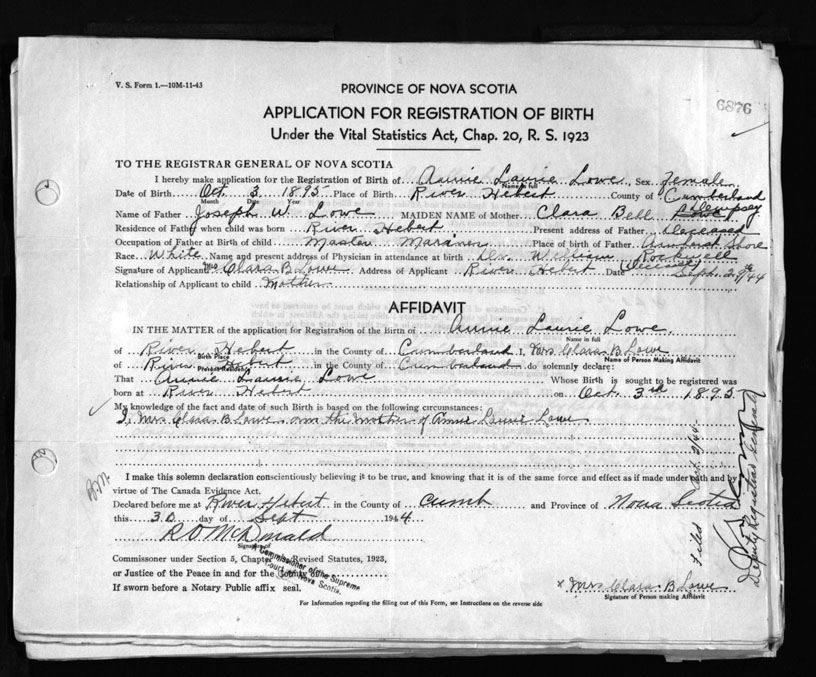 V. S. Form 1.—10M-11-43
6876
PROVINCE OF NOVA SCOTIA
APPLICATION FOR REGISTRATION OF BIRTH
Under the Vital Statistics Act, Chap. 20, R. S. 1923
TO THE REGISTRAR GENERAL OF NOVA SCOTIA
I hereby make application for the Registration of Birth of Annie Laurie Lowe, Sex Female
Name in full
Date of Birth Oct. 3 1895 Place of Birth River Hebert County of Cumberland
Month Date Year
Dempsey
Name of Father Joseph W. Lowe MAIDEN NAME of Mother Clara Bell Lowe
Residence of Father when child was born River Hebert Present address of Father Deceased
Occupation of Father at Birth of child Master Mariner Place of birth of Father Shore
Race White Name and present address of Physician in attendance at birth Dr. William Rockwell
Deceased
Signature of Applicant Mrs Clara B Lowe Address of Applicant River Hebert Date Sept. 29th/44
Relationship of Applicant to child Mother
AFFIDAVIT
IN THE MATTER of the application for Registration of the Birth of Annie Laurie Lowe
Name in full
of River Hebert in the County of Cumberland I, Mrs Clara B Lowe
Birth Place Name of Person Making Affidavit
of River Hebert in the County of Cumberland do solemnly declare:
Present Residence
That Annie Laurie Lowe Whose Birth is sought to be registered was
born at River Hebert on Oct. 3rd 1895
My knowledge of the fact and date of such Birth is based on the following circumstances:
I, Mrs Clara B. Lowe am the Mother of Annie Laurie Lowe
I make this solemn declaration conscientiously believing it to be true, and knowing that it is of the same force and effect as if made under oath and by
virtue of The Canada Evidence Act.
Declared before me at River Hebert in the County of Cumb and Province of Nova Scotia
this 30 day of Sept 1944
R O McDonald
Signature of
Commissoner under Section 5, Chapter Revised Statutes, 1923,
or Justice of the Peace in and for the County of
A Commissioner of the Supreme
Court of Nova Scotia.
If sworn before a Notary Public affix seal.
x Mrs Clara B Lowe
Signature of Person making Affidavit
For Information regarding the filling out of this Form, see Instructions on the reverse side
Filed
Deputy Registrar General